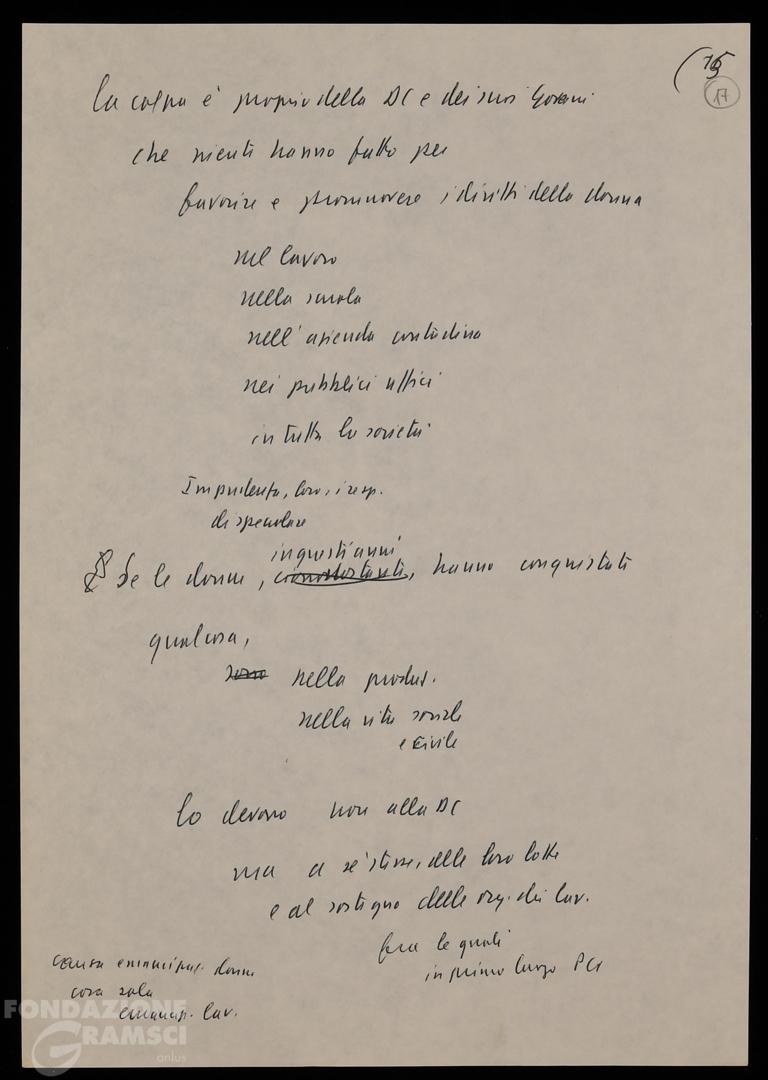 (15
17
la colpa è proprio della DC e dei suoi Governi
che niente hanno fatto per
favorire e promuovere i diritti della donna
nel lavoro
nella scuola
nell'azienda contadina
nei pubblici uffici
in tutta la società
Impudenza, loro,
di speculare
in questi anni
Se le donne, ciononostante, hanno conquistato
qualcosa,
sono nella produz.
nella vita sociale
e civile
lo devono non alla DC
ma a se stesse, alle loro lotte
e al sostegno delle org. dei lav.
fra le quali
in primo luogo PCI
causa emancipaz. donna
cosa sola
emancip. lav.
FONDAZIONE
GRAMSCI
onlus